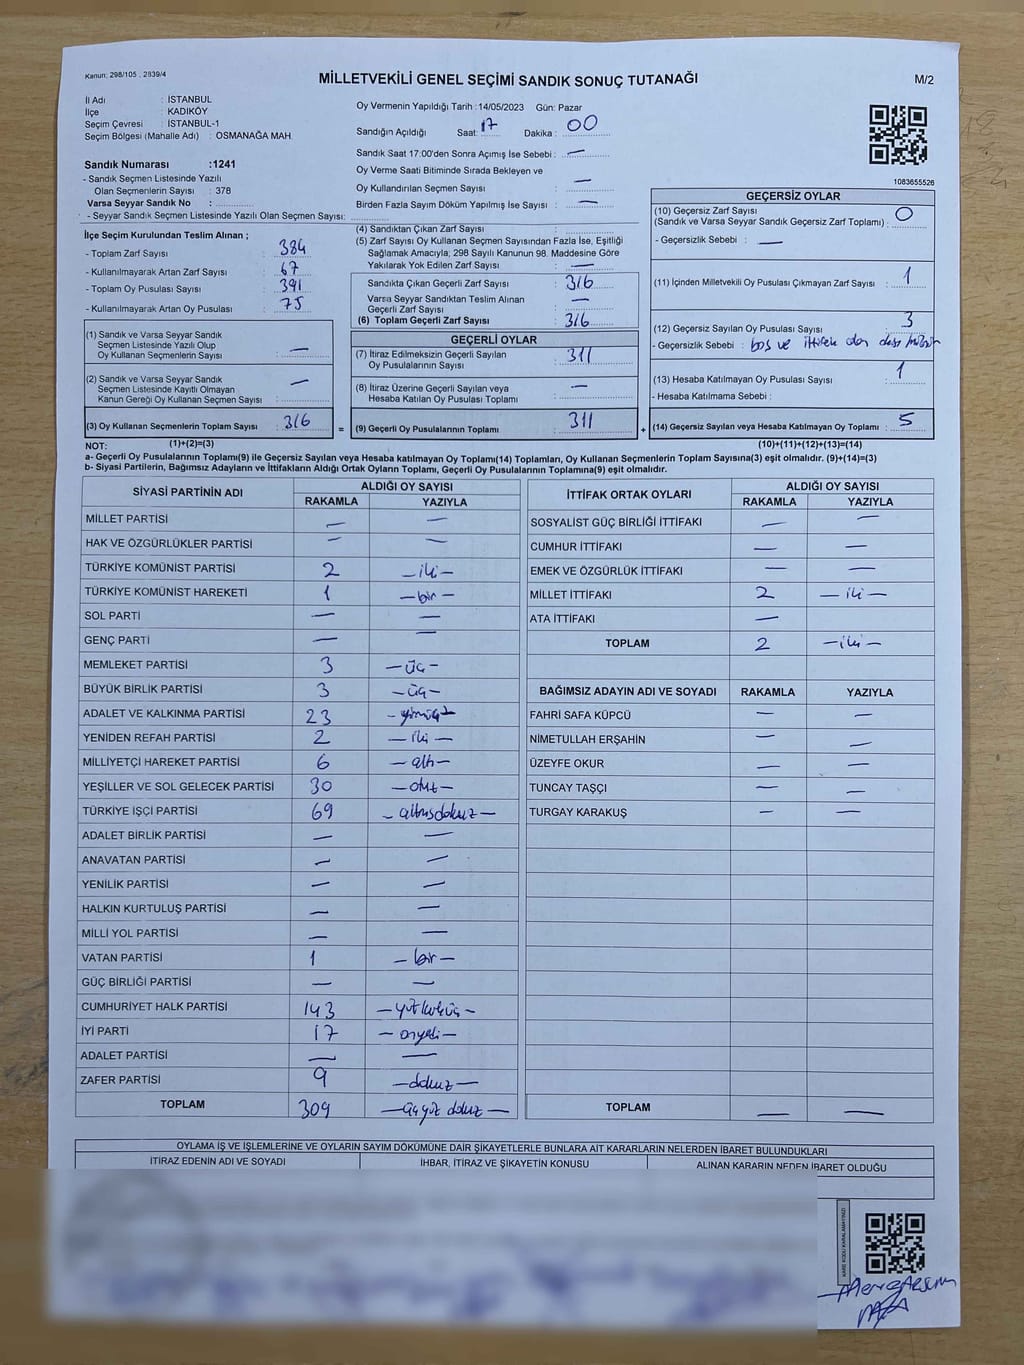 Kanun: 298/105 , 2839/4
MİLLETVEKİLİ GENEL SEÇİMİ SANDIK SONUÇ TUTANAĞI
M/2
İl Adı : İSTANBUL
İlçe : KADIKÖY
Seçim Çevresi : İSTANBUL-1
Seçim Bölgesi (Mahalle Adı) : OSMANAĞA MAH.
Oy Vermenin Yapıldığı Tarih :14/05/2023 Gün: Pazar
Sandığın Açıldığı Saat: 17 Dakika : 00
Sandık Saat 17:00'den Sonra Açımış İse Sebebi : —
Oy Verme Saati Bitiminde Sırada Bekleyen ve
Oy Kullandırılan Seçmen Sayısı : —
Birden Fazla Sayım Döküm Yapılmış İse Sayısı : —
1083655526
Sandık Numarası :1241
- Sandık Seçmen Listesinde Yazılı
Olan Seçmenlerin Sayısı : 378
Varsa Seyyar Sandık No :
- Seyyar Sandık Seçmen Listesinde Yazılı Olan Seçmen Sayısı:
İlçe Seçim Kurulundan Teslim Alınan ;
- Toplam Zarf Sayısı : 384
- Kullanılmayarak Artan Zarf Sayısı : 67
- Toplam Oy Pusulası Sayısı : 391
- Kullanılmayarak Artan Oy Pusulası : 75
(1) Sandık ve Varsa Seyyar Sandık
Seçmen Listesinde Yazılı Olup
Oy Kullanan Seçmenlerin Sayısı : —
(2) Sandık ve Varsa Seyyar Sandık
Seçmen Listesinde Kayıtlı Olmayan
Kanun Gereği Oy Kullanan Seçmen Sayısı : —
(3) Oy Kullanan Seçmenlerin Toplam Sayısı : 316
(1)+(2)=(3)
(4) Sandıktan Çıkan Zarf Sayısı :
(5) Zarf Sayısı Oy Kullanan Seçmen Sayısından Fazla İse, Eşitliği
Sağlamak Amacıyla; 298 Sayılı Kanunun 98. Maddesine Göre
Yakılarak Yok Edilen Zarf Sayısı : —
Sandıkta Çıkan Geçerli Zarf Sayısı : 316
Varsa Seyyar Sandıktan Teslim Alınan
Geçerli Zarf Sayısı : —
(6) Toplam Geçerli Zarf Sayısı : 316
GEÇERLİ OYLAR
(7) İtiraz Edilmeksizin Geçerli Sayılan
Oy Pusulalarının Sayısı : 311
(8) İtiraz Üzerine Geçerli Sayılan veya
Hesaba Katılan Oy Pusulası Toplamı : —
= (9) Geçerli Oy Pusulalarının Toplamı : 311
GEÇERSİZ OYLAR
(10) Geçersiz Zarf Sayısı
(Sandık ve Varsa Seyyar Sandık Geçersiz Zarf Toplamı) : 0
- Geçersizlik Sebebi : —
(11) İçinden Milletvekili Oy Pusulası Çıkmayan Zarf Sayısı : 1
(12) Geçersiz Sayılan Oy Pusulası Sayısı : 3
- Geçersizlik Sebebi : boş ve ittifak
(13) Hesaba Katılmayan Oy Pusulası Sayısı : 1
- Hesaba Katılmama Sebebi :
+ (14) Geçersiz Sayılan veya Hesaba Katılmayan Oy Toplamı : 5
(10)+(11)+(12)+(13)=(14)
NOT:
a- Geçerli Oy Pusulalarının Toplamı(9) ile Geçersiz Sayılan veya Hesaba katılmayan Oy Toplamı(14) Toplamları, Oy Kullanan Seçmenlerin Toplam Sayısına(3) eşit olmalıdır. (9)+(14)=(3)
b- Siyasi Partilerin, Bağımsız Adayların ve İttifakların Aldığı Ortak Oyların Toplamı, Geçerli Oy Pusulalarının Toplamına(9) eşit olmalıdır.
SİYASİ PARTİNİN ADI ALDIĞI OY SAYISI
RAKAMLA YAZIYLA
MİLLET PARTİSİ — —
HAK VE ÖZGÜRLÜKLER PARTİSİ — —
TÜRKİYE KOMÜNİST PARTİSİ 2 —iki—
TÜRKİYE KOMÜNİST HAREKETİ 1 —bir—
SOL PARTİ — —
GENÇ PARTİ — —
MEMLEKET PARTİSİ 3 —üç—
BÜYÜK BİRLİK PARTİSİ 3 —üç—
ADALET VE KALKINMA PARTİSİ 23 —yirmiüç—
YENİDEN REFAH PARTİSİ 2 —iki—
MİLLİYETÇİ HAREKET PARTİSİ 6 —altı—
YEŞİLLER VE SOL GELECEK PARTİSİ 30 —otuz—
TÜRKİYE İŞÇİ PARTİSİ 69 —altmışdokuz—
ADALET BİRLİK PARTİSİ — —
ANAVATAN PARTİSİ — —
YENİLİK PARTİSİ — —
HALKIN KURTULUŞ PARTİSİ — —
MİLLİ YOL PARTİSİ — —
VATAN PARTİSİ 1 —bir—
GÜÇ BİRLİĞİ PARTİSİ — —
CUMHURİYET HALK PARTİSİ 143 —yüzkırküç—
İYİ PARTİ 17 —onyedi—
ADALET PARTİSİ — —
ZAFER PARTİSİ 9 —dokuz—
TOPLAM 309 —üçyüz dokuz—
İTTİFAK ORTAK OYLARI ALDIĞI OY SAYISI
RAKAMLA YAZIYLA
SOSYALİST GÜÇ BİRLİĞİ İTTİFAKI — —
CUMHUR İTTİFAKI — —
EMEK VE ÖZGÜRLÜK İTTİFAKI — —
MİLLET İTTİFAKI 2 —iki—
ATA İTTİFAKI —
TOPLAM 2 —iki—
BAĞIMSIZ ADAYIN ADI VE SOYADI RAKAMLA YAZIYLA
FAHRİ SAFA KÜPCÜ — —
NİMETULLAH ERŞAHİN — —
ÜZEYFE OKUR — —
TUNCAY TAŞÇI — —
TURGAY KARAKUŞ — —
TOPLAM — —
OYLAMA İŞ VE İŞLEMLERİNE VE OYLARIN SAYIM DÖKÜMÜNE DAİR ŞİKAYETLERLE BUNLARA AİT KARARLARIN NELERDEN İBARET BULUNDUKLARI
İTİRAZ EDENİN ADI VE SOYADI İHBAR, İTİRAZ VE ŞİKAYETİN KONUSU ALINAN KARARIN NEDEN İBARET OLDUĞU
KARE KODU KARALAMAYINIZ!